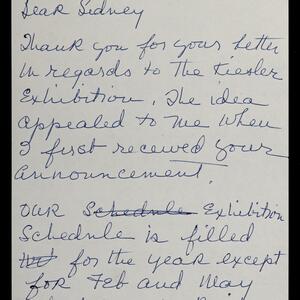 Dear Sidney
Thank you for your letter
in regards to The Kiesler
Exhibition. The idea
appealed to me when
I first received your
announcement.
Our Schedule Exhibition
Schedule is filled
for the year except
for Feb and May